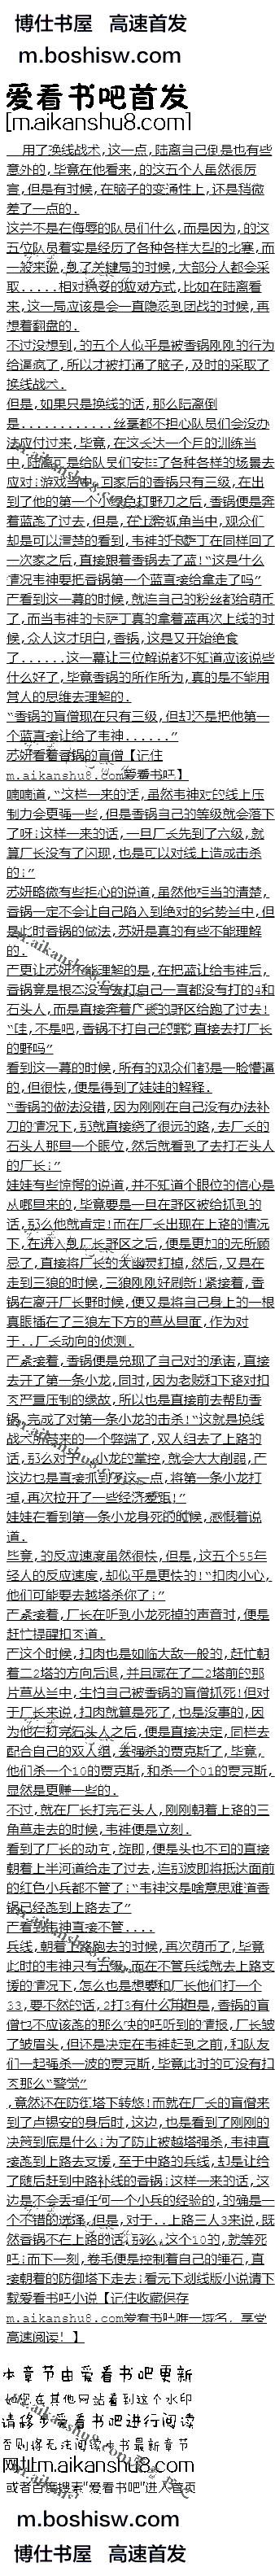 博仕书屋 高速首发
m.boshisw.com
爱看书吧首发
[m.aikanshu8.com]
用了换线战术,这一点,陆离自己倒是也有些
意外的,毕竟在他看来,的这五个人虽然很厉
害,但是有时候,在脑子的变通性上,还是稍微
差了一点的.
这并不是在侮辱的队员们什么,而是因为,的这
五位队员着实是经历了各种各样大型的比赛,而
一般来说,到了关键局的时候,大部分人都会采
取.....相对稳妥的应对方式,比如在陆离看
来,这一局应该是会一直隐忍到团战的时候,再
想着翻盘的.
不过没想到,的五个人似乎是被香锅刚刚的行为
给逼疯了,所以才被打通了脑子,及时的采取了
换线战术.
但是,如果只是换线的话,那么陆离倒
是............丝毫都不担心队员们会没办
法应付过来,毕竟,在这长达一个月的训练当
中,陆离可是给队员们安排了各种各样的场景去
应对:游戏当中,回家后的香锅只有三级,在出
到了他的第一个小绿色打野刀之后,香锅便是奔
着蓝到了过去,但是,在上帝视角当中,观众们
却是可以清楚的看到,韦神的卡萨丁在同样回了
一次家之后,直接跟着香锅去了蓝!"这是什么
情况韦神要把香锅第一个蓝直接给拿走了吗"
产看到这一幕的时候,就连自己的粉丝都给萌币
了,而当韦神的卡萨丁真的拿着蓝再次上线的时
候,众人这才明白,香锅,这是又开始绝食
了......这一幕让三位解说都不知道应该说些
什么好了,毕竟香锅的所作所为,真的是不能用
常人的思维去理解的.
"香锅的盲僧现在只有三级,但却还是把他第一
个蓝直接让给了韦神......"
苏妍看着香锅的盲僧【记住
m.aikanshu8.com爱看书吧】
喃喃道,"这样一来的话,虽然韦神对的线上压
制力会更强一些,但是香锅自己的等级就会落下
了呀:这样一来的话,一旦厂长先到了六级,就
算厂长没有了闪现,也是可以对线上造成击杀
的:"
苏妍略微有些担心的说道,虽然他相当的清楚,
香锅一定不会让自己陷入到绝对的劣势当中,但
是此时香锅的做法,苏妍是真的有些不能理解
的.
产更让苏妍不能理解的是,在把蓝让给韦神后,
香锅竟是根本没有去打自己一直都没有打的4和
石头人,而是直接奔着厂长的野区给跑了过去!
"哇,不是吧,香锅不打自己的野,直接去打厂长
的野吗"
看到这一幕的时候,所有的观众们都是一脸懵逼
的,但很快,便是得到了娃娃的解释.
"香锅的做法没错,因为刚刚在自己没有办法补
刀的情况下,那就直接绕了很远的路,去厂长的
石头人那里一个眼位,然后就看到了去打石头人
的厂长:"
娃娃有些惊愕的说道,并不知道个眼位的信心是
从哪里来的,毕竟要是一旦在野区被给抓到的
话,那么他就肯定!而在厂长出现在上路的情况
下,在进入到厂长野区之后,便是更加的无所顾
忌了,直接将厂长的大幽灵打掉,然后,又是在
走到三狼的时候,三狼刚刚好刷新!紧接着,香
锅在离开厂长野时候,便又是将自己身上的一根
真眼插在了三狼左下方的草丛里面,作为对
于..厂长动向的侦测.
产紧接着,香锅便是兑现了自己对的承诺,直接
去开了第一条小龙,同时,因为老贼和下路对扣
肉严重压制的缘故,所以也是直接前去帮助香
锅,完成了对第一条小龙的击杀!"这就是换线
战术所带来的一个弊端了,双人组去了上路的
话,那么对于..小龙的掌控,就会大大削弱,产
这边也是直接抓到了这一点,将第一条小龙打
掉,再次拉开了一些经济差距!"
娃娃在看到第一条小龙身死的时候,感慨着说
道.
毕竟,的反应速度虽然很快,但是,这五个55年
轻人的反应速度,却似乎是更快的!"扣肉小心,
他们可能要去越塔杀你了:"
产紧接着,厂长在听到小龙死掉的声音时,便是
赶忙提醒扣肉道.
产这个时候,扣肉也是如临大敌一般的,赶忙朝
着二2塔的方向后退,并且藏在了二2塔前的那
片草丛当中,生怕自己被香锅的盲僧抓死!但对
于厂长来说,扣肉就算是死了,也是没事的,因
为他在打完石头人之后,便是直接决定,同样去
配合自己的双人组,去强杀的贾克斯了,毕竟,
他们杀一个10的贾克斯,和杀一个01的贾克斯,
显然是更赚一些的.
不过,就在厂长打完石头人,刚刚朝着上路的三
角草走去的时候,韦神便是立刻.
看到了厂长的动向,旋即,便是头也不回的直接
朝着上半河道给走了过去,连那波即将抵达面前
的红色小兵都不管了:"韦神这是啥意思难道香
锅已经到上路去了"
产看到韦神直接不管....
兵线,朝着上路跑去的时候,再次萌币了,毕竟
此时的韦神只有五级,而在不管兵线就去上路支
援的情况下,怎么也是想要和厂长他们打一个
33,要不然的话,2打3有什么用但是,香锅的盲
僧也不应该到的那么快的吧听到的情报,厂长皱
了皱眉头,但还是决定在韦神赶到之前,和队友
们一起强杀一波的贾克斯,毕竟此时的可没有扣
肉那么"警觉"
,竟然还在防御塔下转悠!而就在厂长的盲僧来
到了卢锡安的身后时,这边,也是看到了刚刚的
决策到底是什么:为了防止被越塔强杀,韦神直
接到到上路去支援,至于中路的兵线,却是让给
了随后赶到中路补线的香锅:这样一来的话,这
边是不会丢掉任何一个小兵的经验的,的确是一
个不错的选择,但是,对于..上路三人3来说,既
然香锅不在上路的话,那么,这个10的,就等死
吧:而下一刻,卷毛便是控制着自己的锤石,直
接朝着的防御塔下走去:看无下划线版小说请下
载爱看书吧小说【记住收藏保存
m.aikanshu8.com爱看书吧唯一域名,享受
高速阅读!】
本章节由爱看书吧更新
如您在其他网站看到这个水印
请移步爱看书吧进行阅读
否则将无法阅读本书最新章节
网址m.aikanshu8.com
或者百度搜索"爱看书吧"进入首页
m.boshisw.com
博仕书屋 高速首发